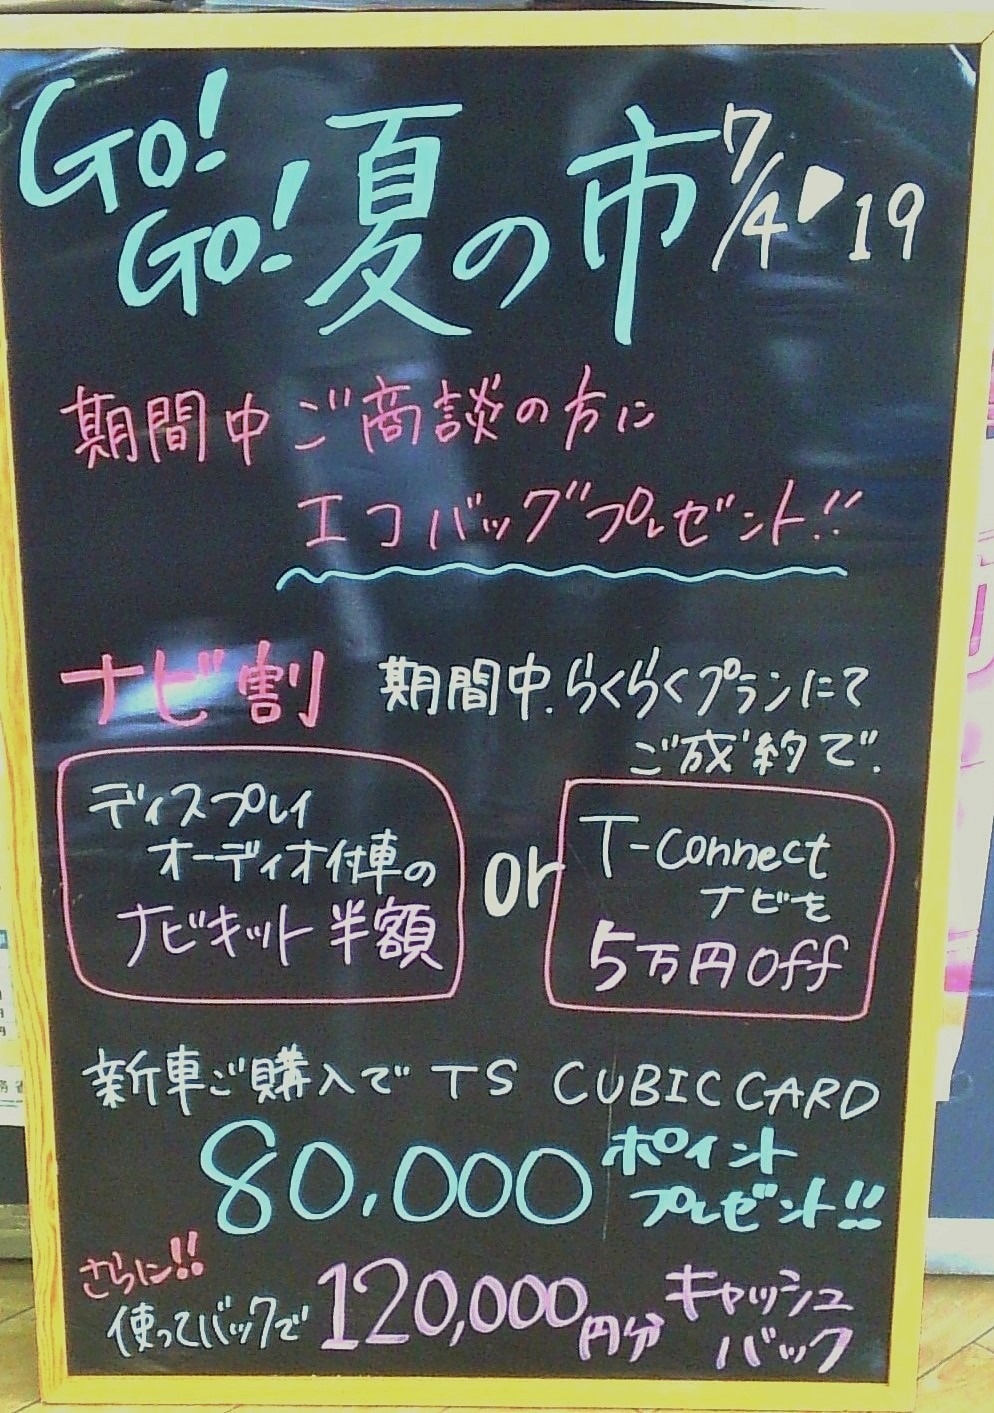 Go!
Go! 夏の市 7/4▶19
期間中ご商談の方に
エコバッグプレゼント!!
ナビ割 期間中、らくらくプランにて
ご成約で、
ディスプレイ
オーディオ付車の
ナビキット半額
or
T-connect
ナビを
5万円Off
新車ご購入で TS CUBIC CARD
80,000 ポイント
プレゼント!!
さらに!!
使ってバックで 120,000円分 キャッシュ
バック